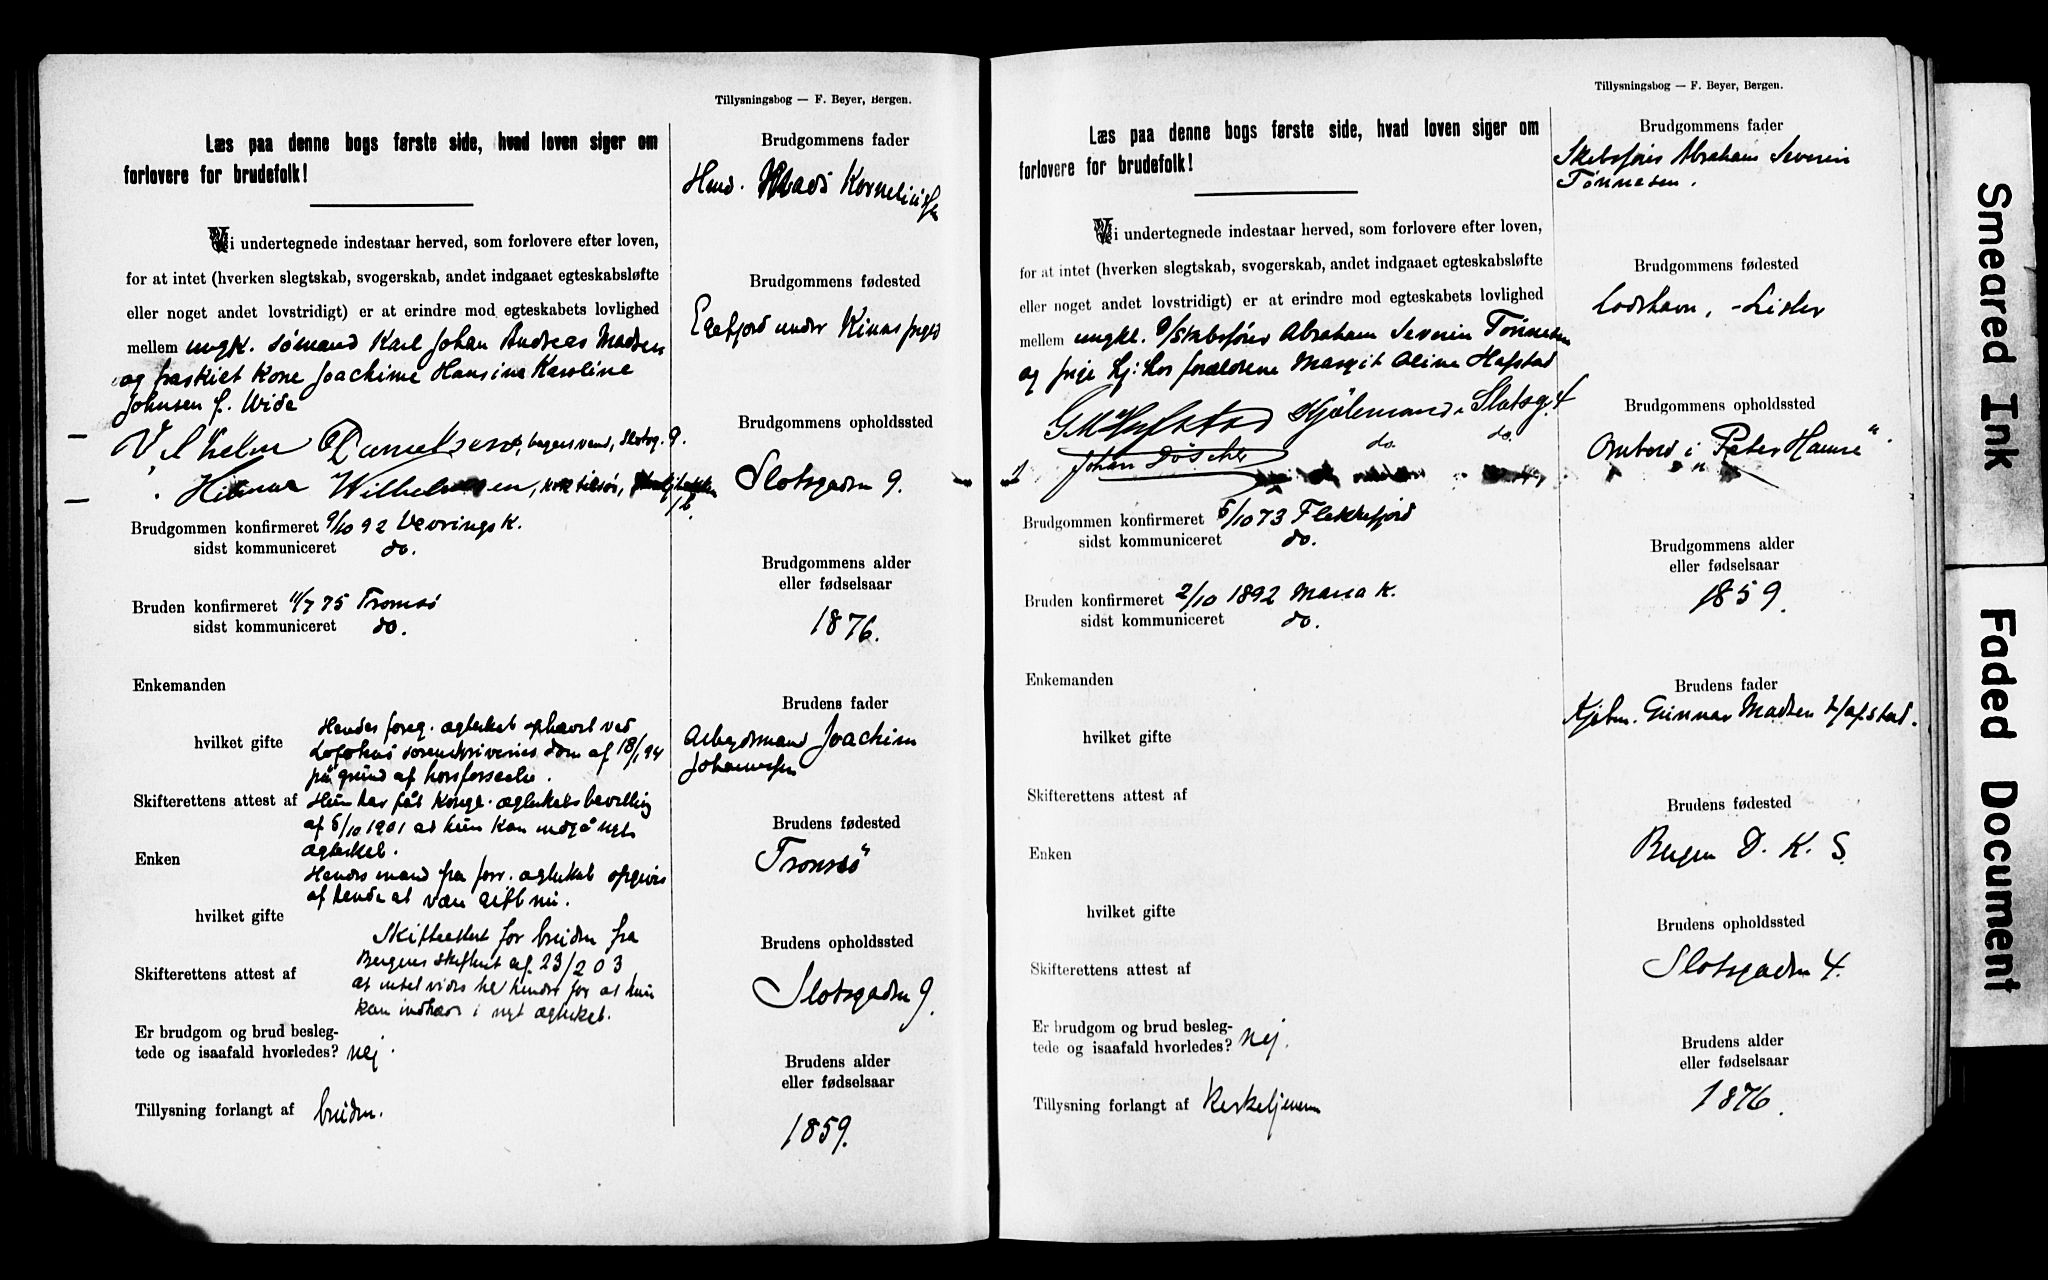 Tillysningsbog — F. Beyer, Bergen.
Læs paa denne bogs første side, hvad loven siger om
forlovere for brudefolk!
Vi undertegnede indestaar herved, som forlovere efter loven,
for at intet (hverken slegtskab, svogerskab, andet indgaaet egteskabsløfte
eller noget andet lovstridigt) er at erindre mod egteskabets lovlighed
mellem ungk. sømand Karl Johan Andreas Madsen
og fraskilt kone Joachime Hansina Karoline
Johnsen f. Wide
Vilhelm Danielsen, bagersvend, Slotsg. 9.
Wilhelmsen,
Brudgommen konfirmeret 9/10 92 Vevrings K.
sidst kommuniceret do.
Bruden konfirmeret 11/7 75 Tromsø
sidst kommuniceret do.
Enkemanden
Hendes foreg. ægteskab ophævet ved
hvilket gifte Lofotens sorenskriveries dom af 18/1 94
på grund af horsforseelse.
Skifterettens attest af Hun har fåt kongl. ægteskabsbevilling
af 5/10 1901 at hun kan indgå nyt
ægteskab.
Enken
Hendes mand fra forr. ægteskab opgives
af hende at være gift nu.
hvilket gifte
Skifteattest for bruden fra
Bergens skifteret af 23/2 03
Skifterettens attest af
at intet vides til hinder for at hun
kan indtræde i nyt ægteskab.
Er brudgom og brud besleg-
tede og isaafald hvorledes? nej.
Tillysning forlangt af bruden.
Brudgommens fader
Hmd. Mads Korneliussen
Brudgommens fødested
Eggefjord under Kinns prgld
Brudgommens opholdssted
Slotsgaden 9.
Brudgommens alder
eller fødselsaar
1876.
Brudens fader
Arbejdsmand Joachim
Johannesen
Brudens fødested
Tromsø
Brudens opholdssted
Slotsgaden 9.
Brudens alder
eller fødselsaar
1859.
Tillysningsbog — F. Beyer, Bergen.
Læs paa denne bogs første side, hvad loven siger om
forlovere for brudefolk!
Vi undertegnede indestaar herved, som forlovere efter loven,
for at intet (hverken slegtskab, svogerskab, andet indgaaet egteskabsløfte
eller noget andet lovstridigt) er at erindre mod egteskabets lovlighed
mellem ungkl. Skibsfører Abraham Severin Tønnesen
og pige hj: hos forældrene Margit Oline Hafstad
G M Hafstad Kjølemand, Slotsg. 4
Johan Döscher do. do.
Brudgommen konfirmeret 5/10 73 Flekkefjord
sidst kommuniceret do.
Bruden konfirmeret 2/10 1892 Maria K.
sidst kommuniceret do.
Enkemanden
hvilket gifte
Skifterettens attest af
Enken
hvilket gifte
Skifterettens attest af
Er brudgom og brud besleg-
tede og isaafald hvorledes? nej.
Tillysning forlangt af Kirketjeneren
Brudgommens fader
Skibsfører Abraham Severin
Tønnesen.
Brudgommens fødested
Lodshavn, - Lister
Brudgommens opholdssted
Ombord i "Peter Hamre"
Brudgommens alder
eller fødselsaar
1859.
Brudens fader
Kjølm. Gunnar Madsen Hafstad.
Brudens fødested
Bergen D. K. S.
Brudens opholdssted
Slotsgaden 4.
Brudens alder
eller fødselsaar
1876.
Smeared Ink
Faded Document